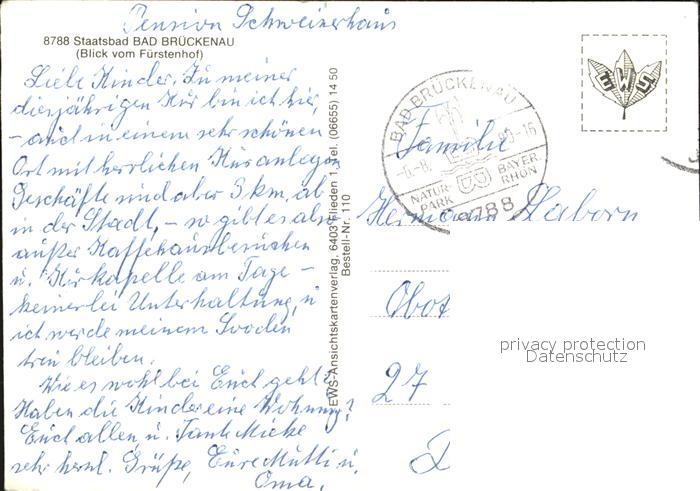 Pension Schweizerhaus
8788 Staatsbad BAD BRÜCKENAU
(Blick vom Fürstenhof)
Liebe Kinder, Zu meiner
diesjährigen Kur bin ich hier,
– auch in einem sehr schönen
Ort mit herrlichen Kuranlagen
Geschäfte sind aber 3 km ab
in der Stadt, – so gibt es also
außer Kaffeehausbesuchen
u. Kurkapelle am Tage –
keinerlei Unterhaltung, u
ich werde meinem
treu bleiben.
Wie es wohl bei Euch geht?
Haben die Kinder eine Wohnung?
Euch allen u. Tante Micke
sehr herzl. Grüße, Eure Mutti u.
Oma.
EWS-Ansichtskartenverlag, 6403 Flieden 1, Tel. (06655) 14 50
Bestell-Nr. 110
BAD BRÜCKENAU
-6.-8. 80-16
NATUR-
PARK
BAYER.
RHÖN
8788
EWS
Familie
Hermann Laborn
Obot
27
privacy protection
Datenschutz